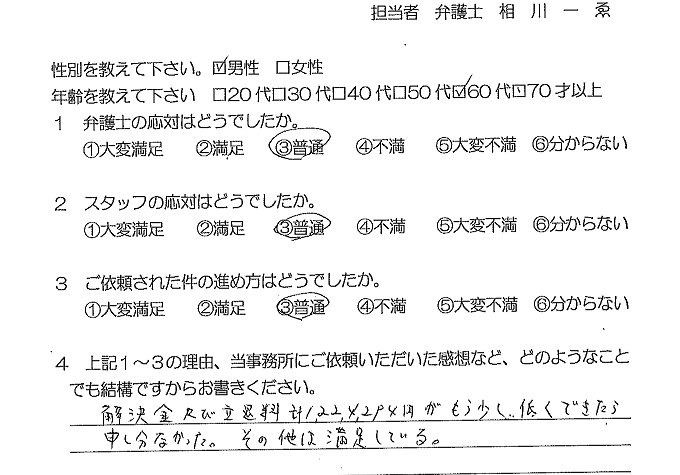 担当者 弁護士 相川一
性別を教えて下さい。☑男性 □女性
年齢を教えて下さい □20代□30代□40代□50代☑60代□70才以上
1 弁護士の応対はどうでしたか。
①大変満足 ②満足 ③普通 ④不満 ⑤大変不満 ⑥分からない
2 スタッフの応対はどうでしたか。
①大変満足 ②満足 ③普通 ④不満 ⑤大変不満 ⑥分からない
3 ご依頼された件の進め方はどうでしたか。
①大変満足 ②満足 ③普通 ④不満 ⑤大変不満 ⑥分からない
4 上記1~3の理由、当事務所にご依頼いただいた感想など、どのようなこと
でも結構ですからお書きください。
解決金及び立退料計1,224,294円がもう少し低くできたら
申し分なかった。その他は満足している。